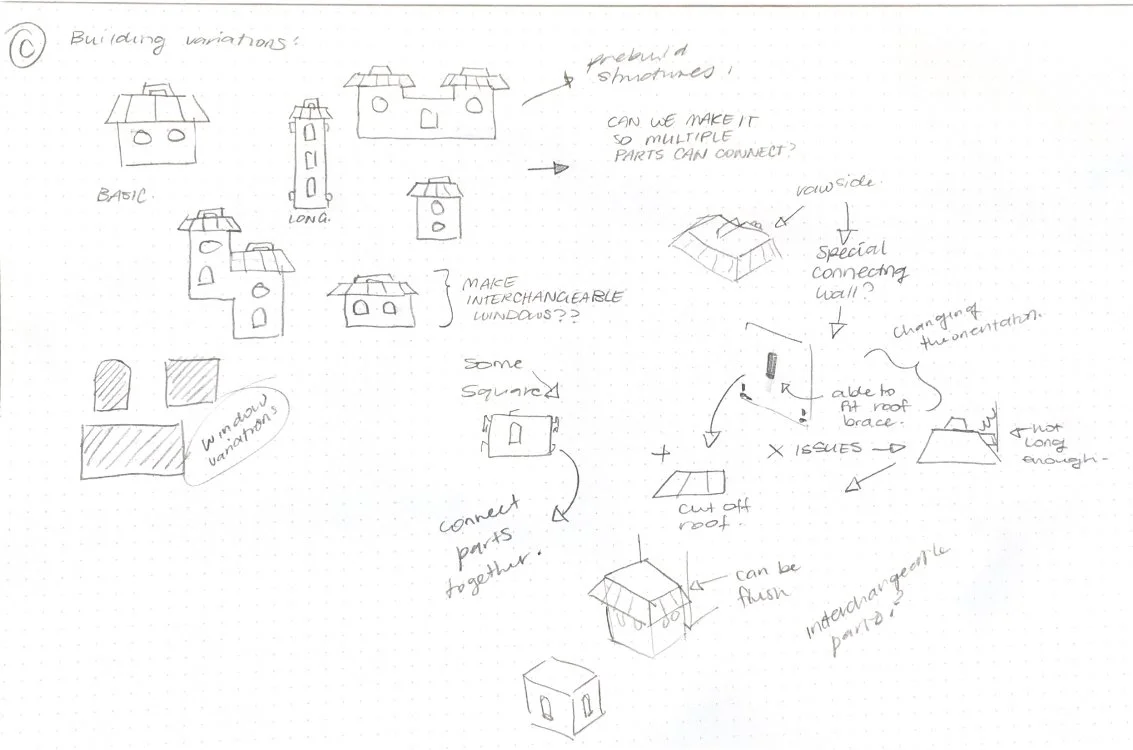 C
Building variations:
prebuild
structures!
CAN WE MAKE IT
SO MULTIPLE
PARTS CAN CONNECT?
BASIC.
LONG.
MAKE
INTERCHANGEABLE
WINDOWS??
side.
Special
connecting
wall?
Changing
the orientation.
Some
Square
able to
fit roof
brace.
window
variations
X ISSUES
not
long
enough-
+
cut off
roof.
connect
parts
together.
can be
flush
interchangeable
parts?